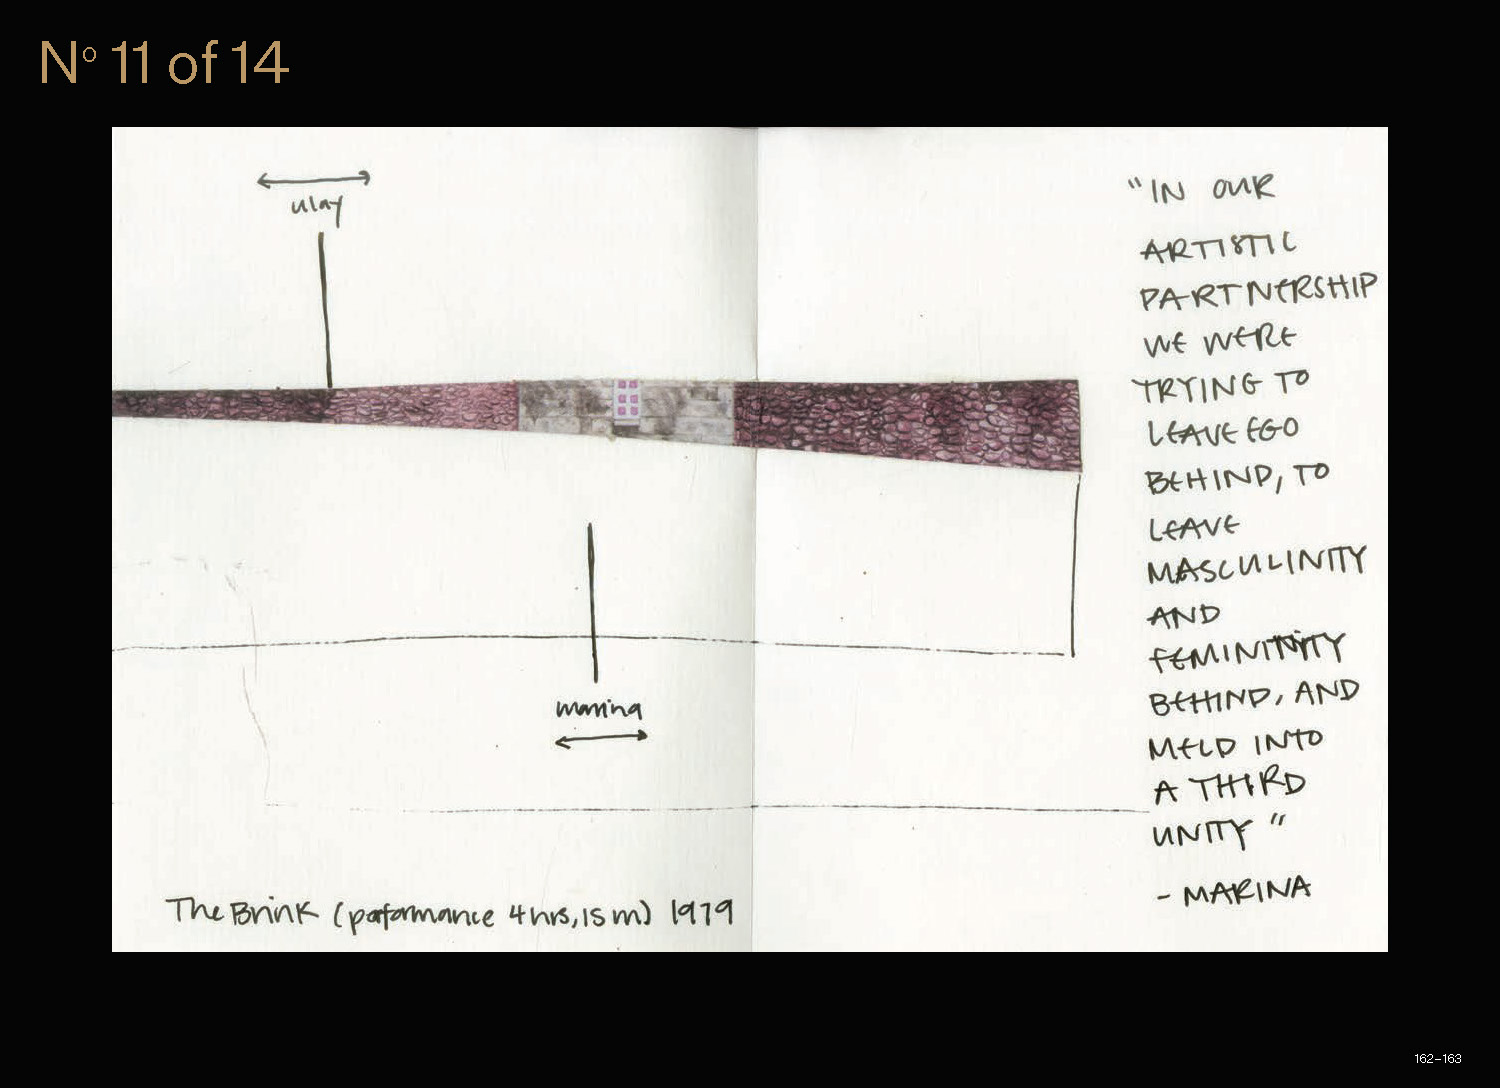 Nº 11 of 14
ulay
marina
The Brink (performance 4 hrs, 15 m) 1979
"IN OUR
ARTISTIC
PARTNERSHIP
WE WERE
TRYING TO
LEAVE EGO
BEHIND, TO
LEAVE
MASCULINITY
AND
FEMININITY
BEHIND, AND
MELD INTO
A THIRD
UNITY"
- MARINA
162–163